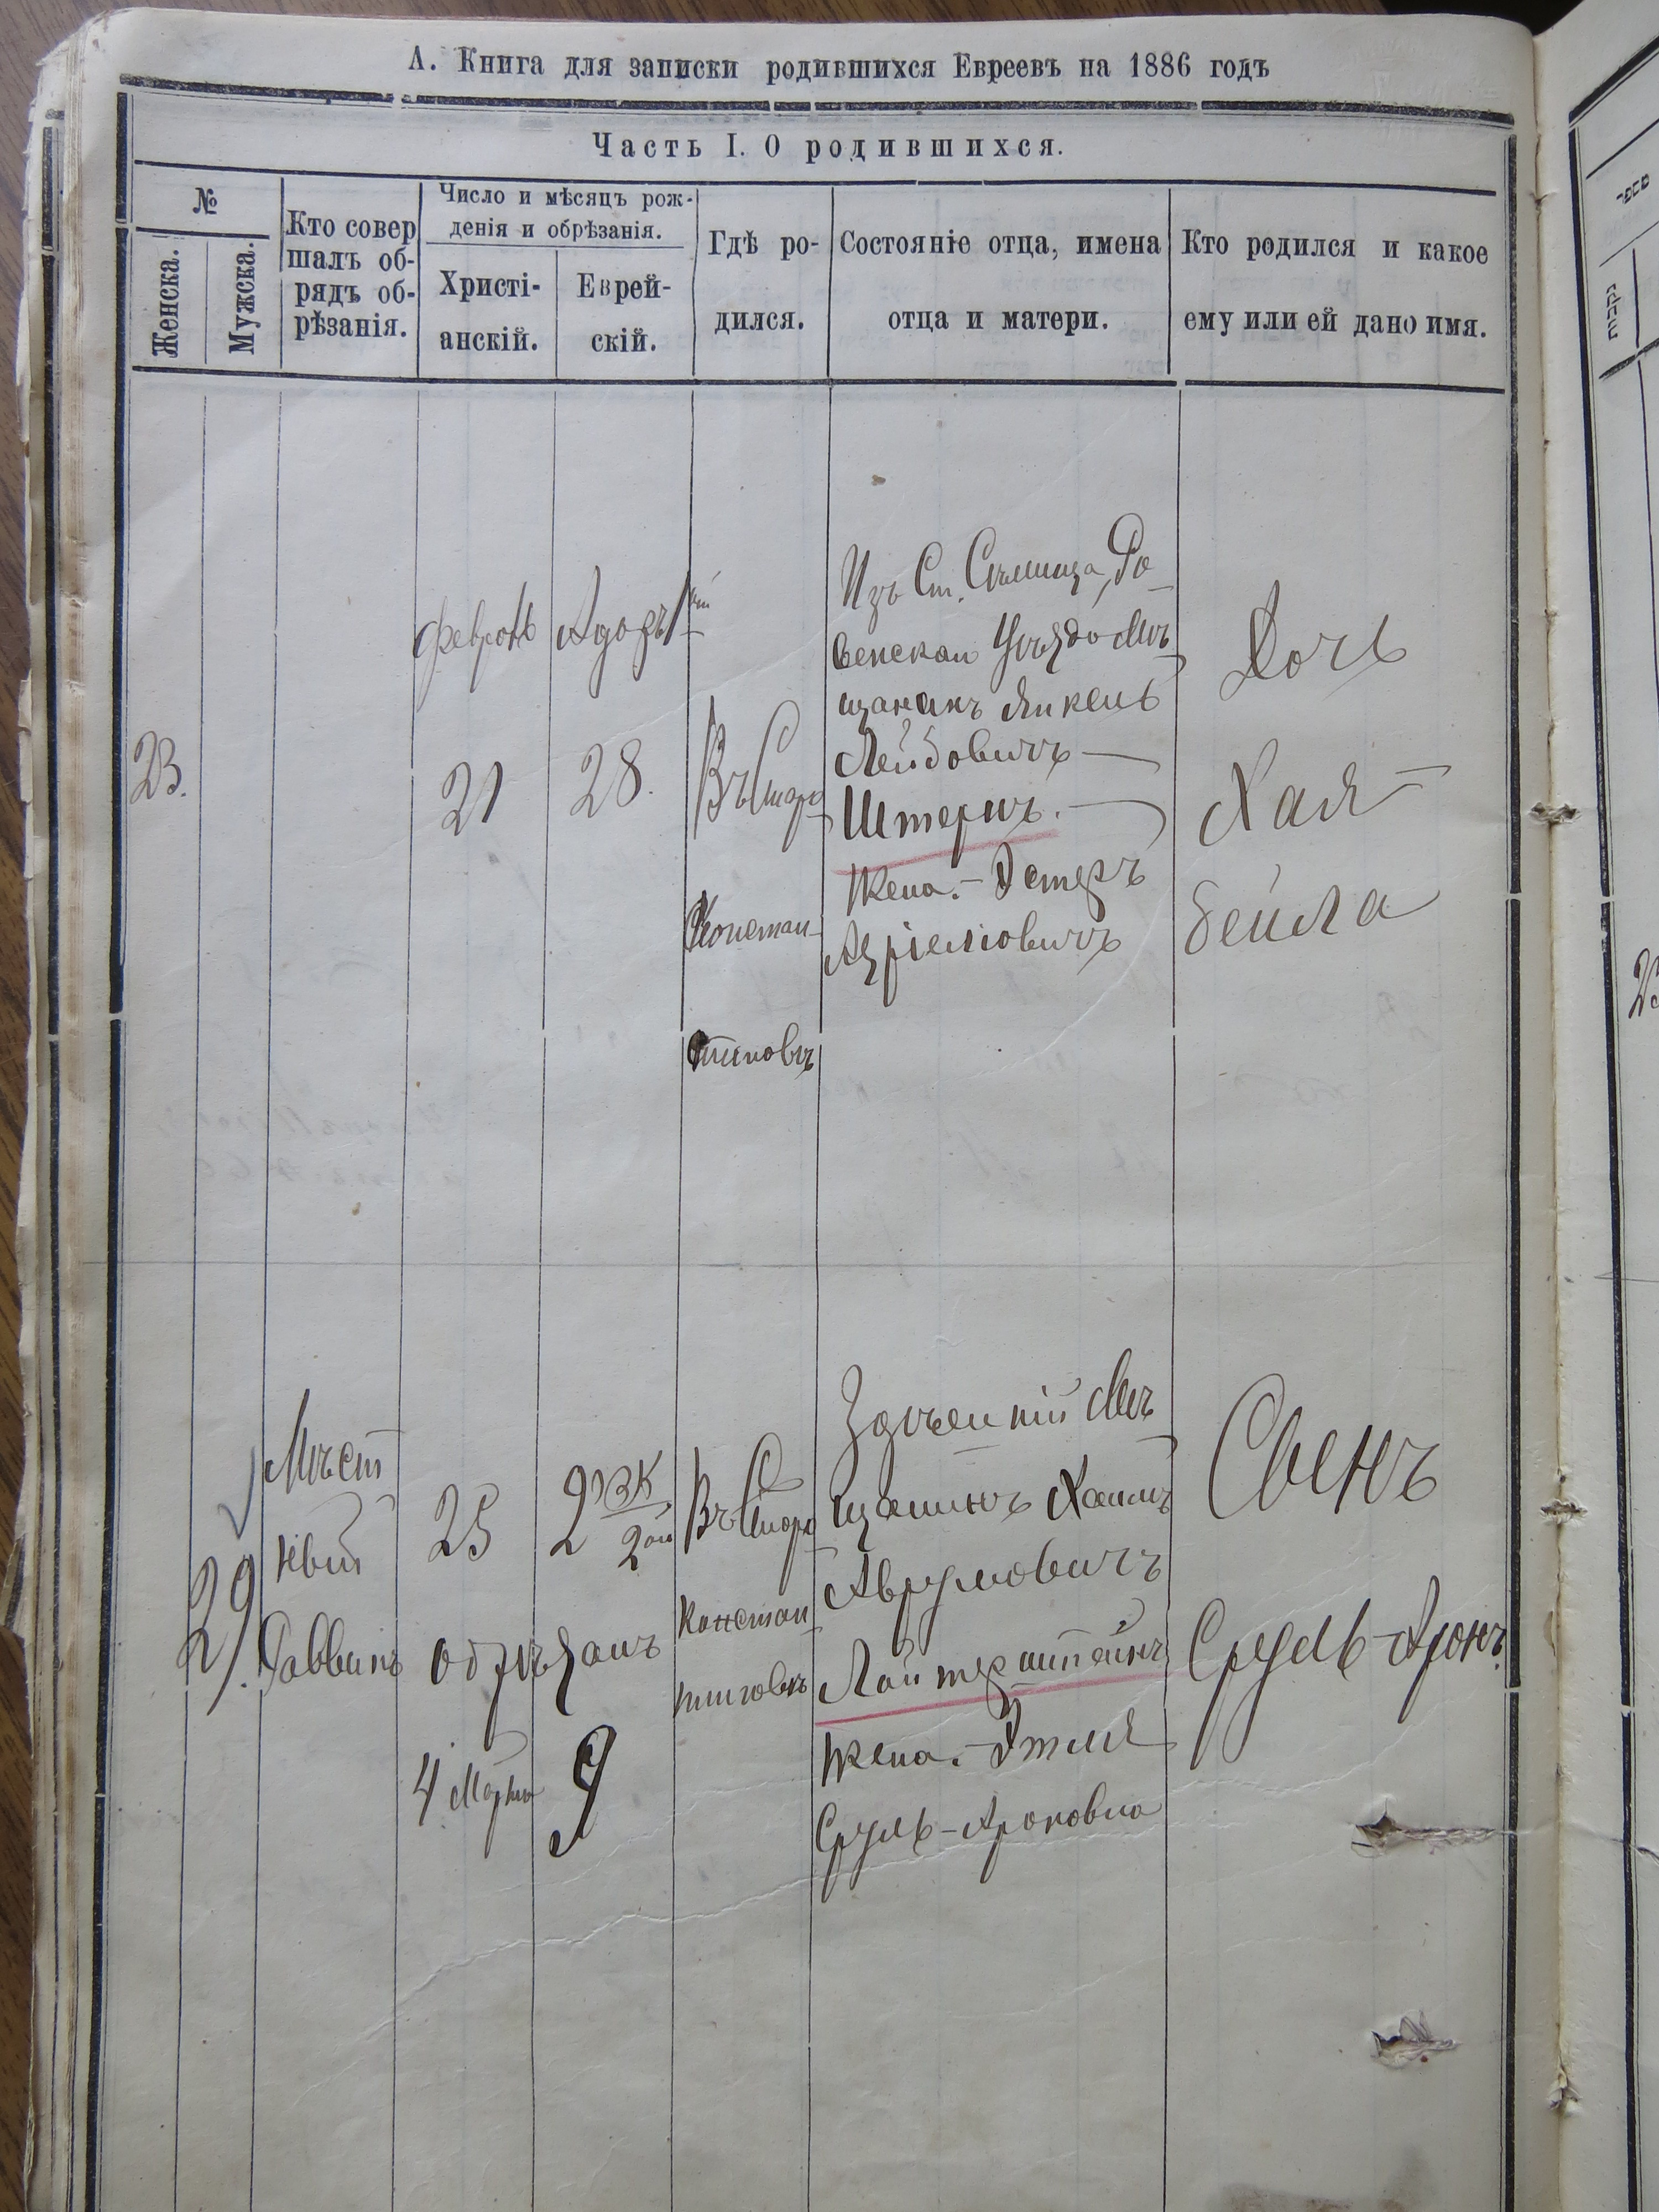 А. Книга для записки родившихся Евреевъ на 1886 годъ
Часть I. О родившихся.
№
Женска.
Мужска.
Кто совер
шалъ об-
рядъ об-
рѣзанія.
Число и мѣсяцъ рож-
денія и обрѣзанія.
Христі-
анскій.
Еврей-
скій.
Гдѣ ро-
дился.
Состояніе отца, имена
отца и матери.
Кто родился и какое
ему или ей дано имя.
23.
Февраль
21
Адаръ 1ый
28.
Въ Старо
Констан-
тиновѣ
Изъ См. Ро-
венскаго Уѣзда Мѣ
щанинъ Янкель
Лейбовичъ
Штернъ.
Жена. - Эстеръ
Азріеліовичъ
Дочь
Хая-
Бейла
29.
Мѣст
ный
Раввинъ
25
2
2ой
обрѣзанъ
4 Марта
9
Въ Старо
Констан
тиновѣ
Здѣшній Мѣ
щанинъ Хаимъ
Аврумовичъ
Лайтерштейнъ
Жена. - Этля
Сруль-Ароновна
Сынъ
Сруль-Аронъ.
ספר
נקבות